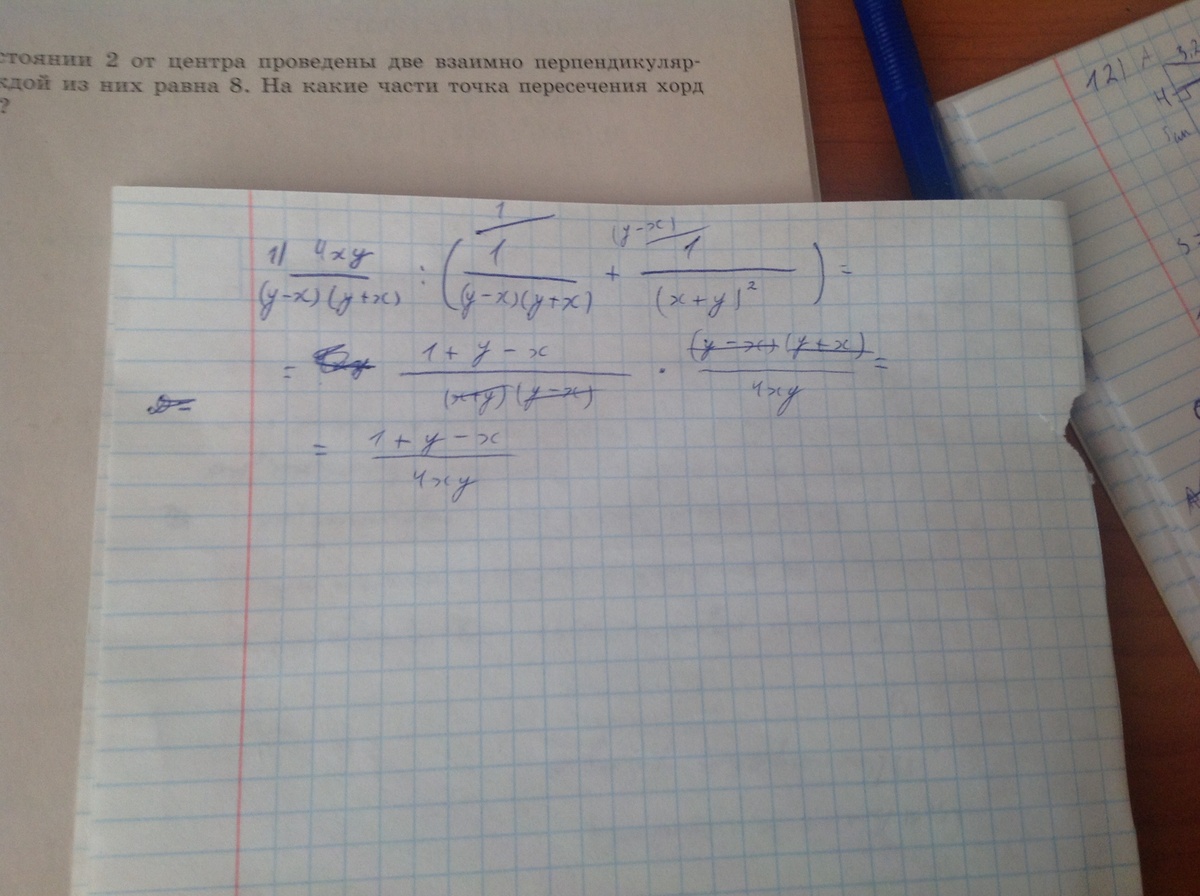 стоянии 2 от центра проведены две взаимно перпендикуляр-
ждой из них равна 8. На какие части точка пересечения хорд
?
12) A 3,2
H
1 (y-x)
1) 4xy/((y-x)(y+x)) : (1/((y-x)(y+x)) + 1/(x+y)²) =
= (1+y-x)/((x+y)(y-x)) · ((y-x)(y+x))/(4xy) =
= (1+y-x)/(4xy)